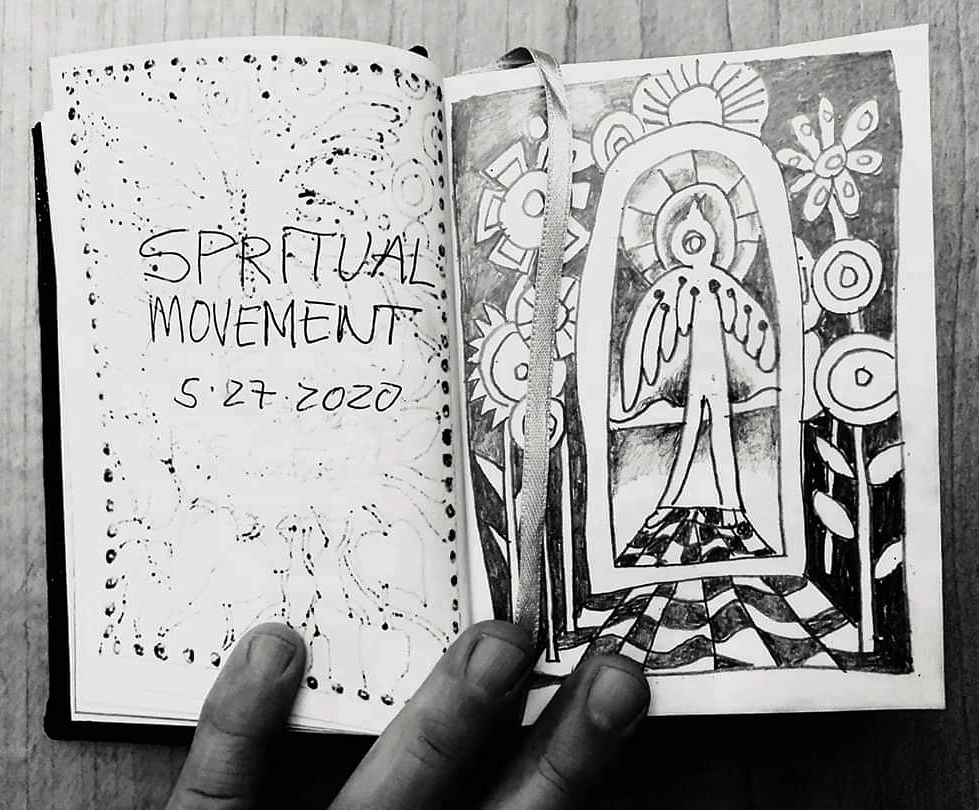 SPRITUAL
MOVEMENT
5·27·2020